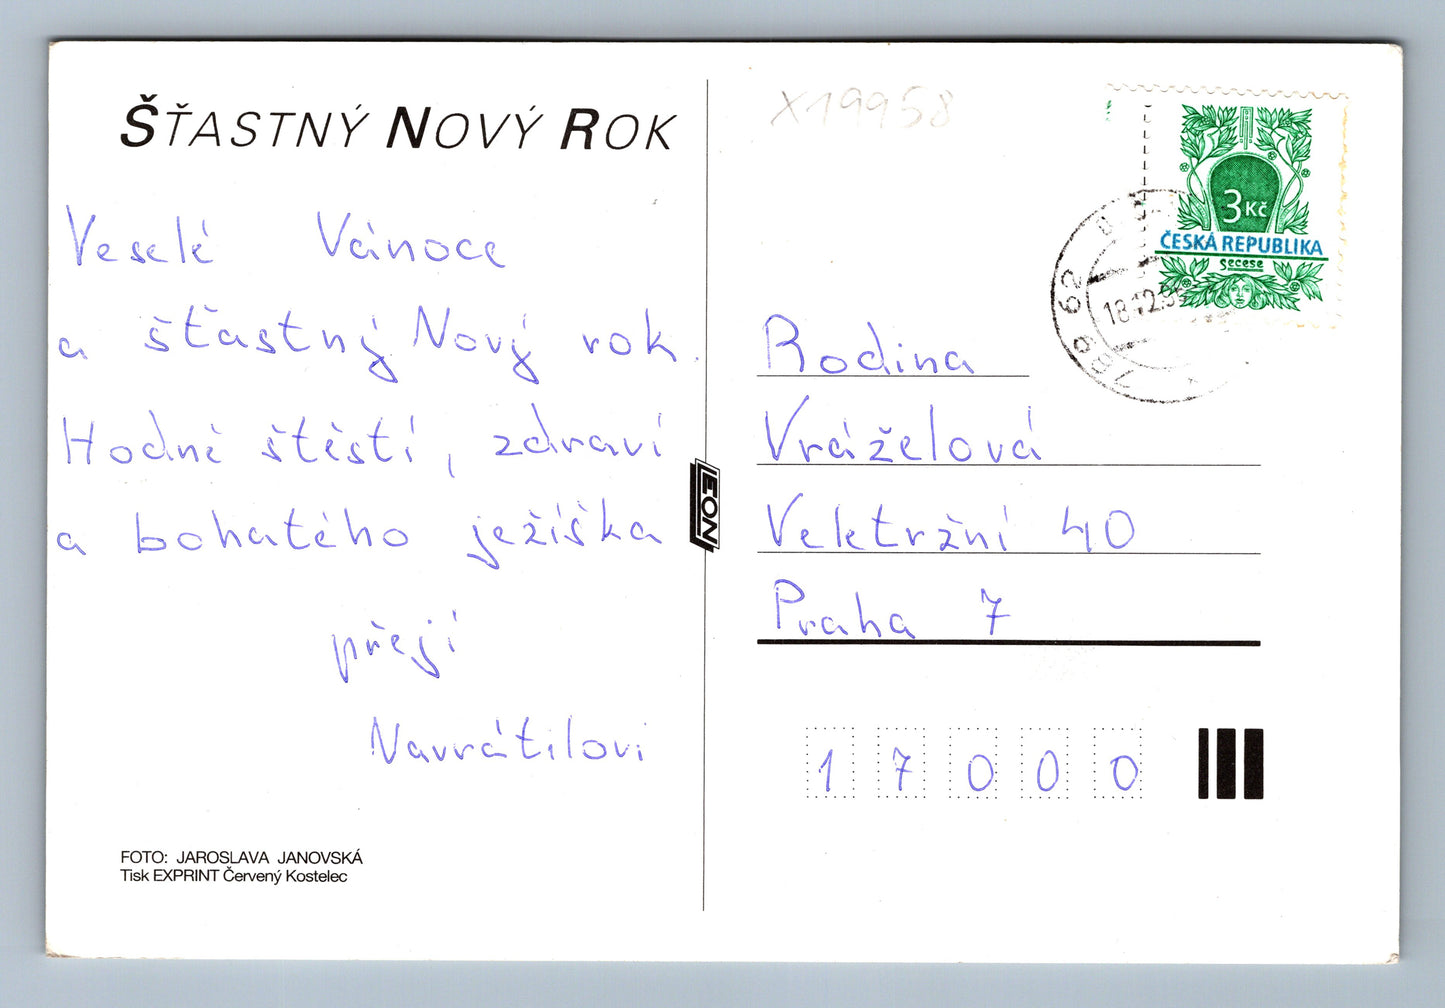 ŠŤASTNÝ NOVÝ ROK
Veselé Vánoce
a šťastný Nový rok.
Hodně štěstí, zdraví
a bohatého ježíška
přejí
Navrátilovi
FOTO: JAROSLAVA JANOVSKÁ
Tisk EXPRINT Červený Kostelec
LEON
X19958
3 Kč
ČESKÁ REPUBLIKA
Secese
789 62
18.12.96
Rodina
Vráželová
Veletržní 40
Praha 7
17000